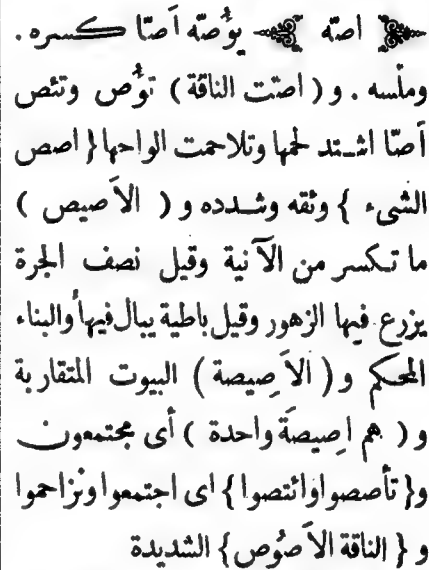 اصّه يؤُصّه أصّا كسره .
وملّسه . و ( اصّت الناقة ) توُّص وتئص
أصّا اشتد لحمها وتلاحمت الواحها { اصص
الشىء } وثقه وشدده و ( الأَصيص )
ما تكسر من الآنية وقيل نصف الجرة
يزرع فيها الزهور وقيل باطية يبال فيها والبناء
المحكم و ( الأَصِيصة ) البيوت المتقاربة
و ( هم اصِيصَة واحدة ) أى مجتمعون
و { تأصصوا وائتصوا } اى اجتمعوا وتزاحموا
و { الناقة الأَصُوص } الشديدة